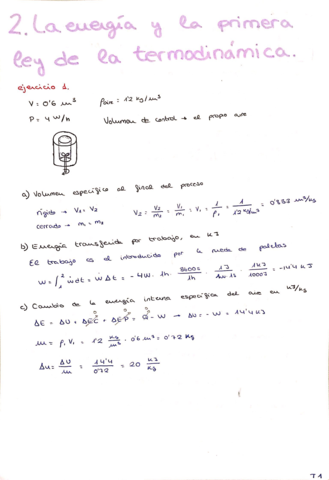 2. La energía y la primera
ley de la termodinámica.
ejercicio 1.
V = 0'6 m³ ρaire = 1'2 kg/m³
P = 4 W/n Volumen de control → el propio aire
a) Volumen específico al final del proceso
rígido → V₁ = V₂
cerrado → m₁ = m₂
V₂ = V₂/m₂ = V₁/m₁ = v₁ = 1/ρ₁ = 1/1'2 kg/m³ = 0'833 m³/kg
b) Energía transferida por trabajo, en kJ
El trabajo es el introducido por la rueda de paletas
W = ∫₁² Ẇdt = Ẇ Δt = -4W · 1h · 3600s/1h · 1J/1W·1s · 1kJ/1000J = -14'4 kJ
c) Cambio de la energía interna específica del aire en kJ/kg
ΔE = ΔU + ΔEC + ΔEP = Q - W → ΔU = -W = 14'4 kJ
m = ρ₁ V₁ = 1'2 kg/m³ · 0'6 m³ = 0'72 kg
Δu = ΔU/m = 14'4/0'72 = 20 kJ/kg